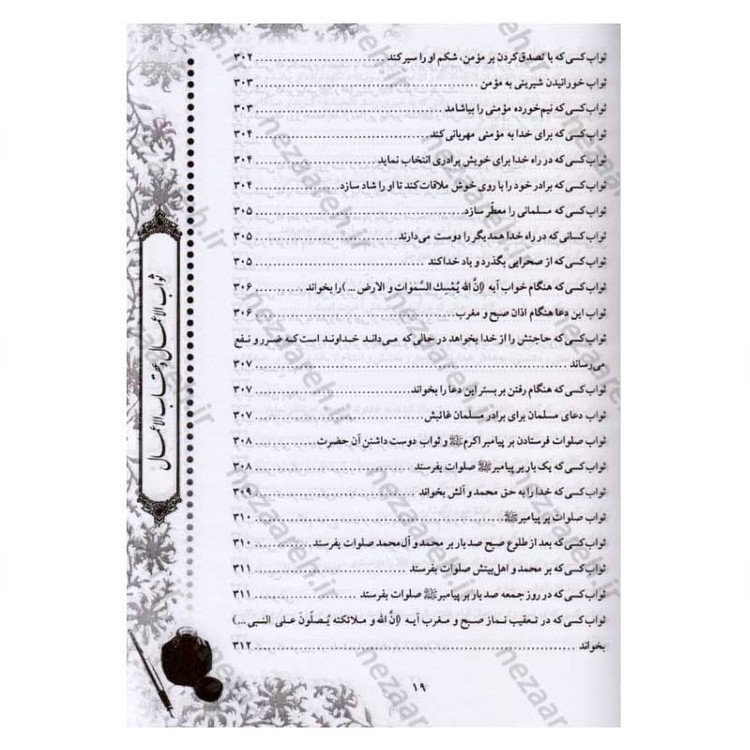 ثواب کسی که با تصدق کردن بر مؤمن، شکم او را سیر کند ........ ۳۰۲
ثواب خورانیدن شیرینی به مؤمن ........ ۳۰۳
ثواب کسی که نیم‌خورده مؤمنی را بیاشامد ........ ۳۰۳
ثواب کسی که برای خدا به مؤمنی مهربانی کند ........ ۳۰۴
ثواب کسی که در راه خدا برای خویش برادری انتخاب نماید ........ ۳۰۴
ثواب کسی که برادر خود را با روی خوش ملاقات کند تا او را شاد سازد ........ ۳۰۴
ثواب کسی که مسلمانی را معطّر سازد ........ ۳۰۵
ثواب کسانی که در راه خدا همدیگر را دوست می‌دارند ........ ۳۰۵
ثواب کسی که از صحرایی بگذرد و یاد خدا کند ........ ۳۰۵
ثواب کسی که هنگام خواب آیه (اِنَّ الله یُمْسِك السَّمَوات و الارض ...) را بخواند ........ ۳۰۶
ثواب این دعا هنگام اذان صبح و مغرب ........ ۳۰۶
ثواب کسی که حاجتش را از خدا بخواهد در حالی که می‌داند خداوند است که ضرر و نفع
می‌رساند ........ ۳۰۷
ثواب کسی که هنگام رفتن بر بستر این دعا را بخواند ........ ۳۰۷
ثواب دعای مسلمان برای برادر مسلمان غائبش ........ ۳۰۷
ثواب صلوات فرستادن بر پیامبر اکرم ﷺ و ثواب دوست داشتن آن حضرت ........ ۳۰۸
ثواب کسی که یک بار بر پیامبر ﷺ صلوات بفرستد ........ ۳۰۸
ثواب کسی که خدا را به حق محمد و آلش بخواند ........ ۳۰۹
ثواب صلوات بر پیامبر ﷺ ........ ۳۱۰
ثواب کسی که بعد از طلوع صبح صد بار بر محمد و آل محمد صلوات بفرستد ........ ۳۱۰
ثواب کسی که بر محمد و اهل بیتش صلوات بفرستد ........ ۳۱۱
ثواب کسی که در روز جمعه صد بار بر پیامبر ﷺ صلوات بفرستد ........ ۳۱۱
ثواب کسی که در تعقیب نماز صبح و مغرب آیه (اِنَّ الله و ملائکته یُصلّونَ علی النبی ...)
بخواند ........ ۳۱۲
۱۹
ثواب الاعمال و عقاب الاعمال
nezaareh.ir